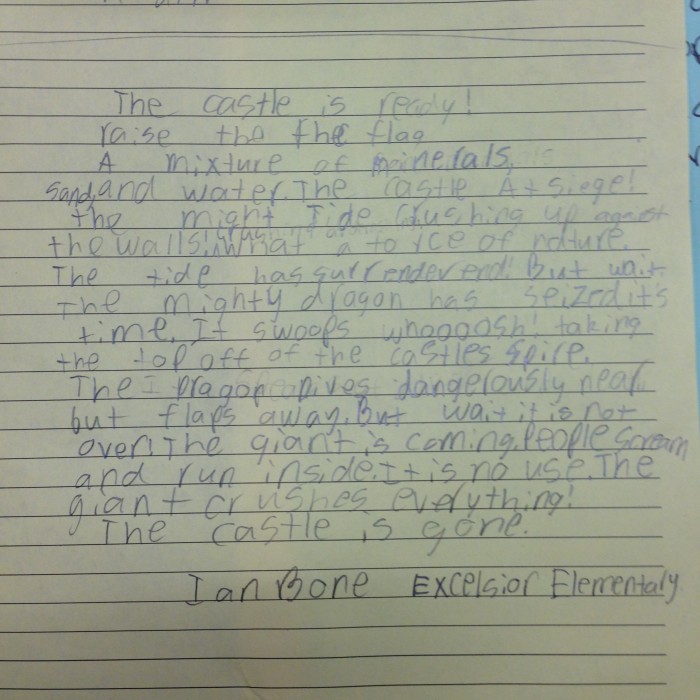 The castle is ready!
raise the the flag
A mixture of minerals,
sand, and water. The castle At siege!
the might Tide Crushing up against
the walls! What a force of nature.
The tide has surrenderend! But wait
The mighty dragon has seized it's
time. It swoops whoooosh! taking
the top off of the castles spire.
The Dragon Dives dangerously near
but flaps away. But wait it is not
over! The giant is coming. People scream
and run inside. It is no use. The
giant crushes everything!
The castle is gone.
Ian Bone Excelsior Elementary